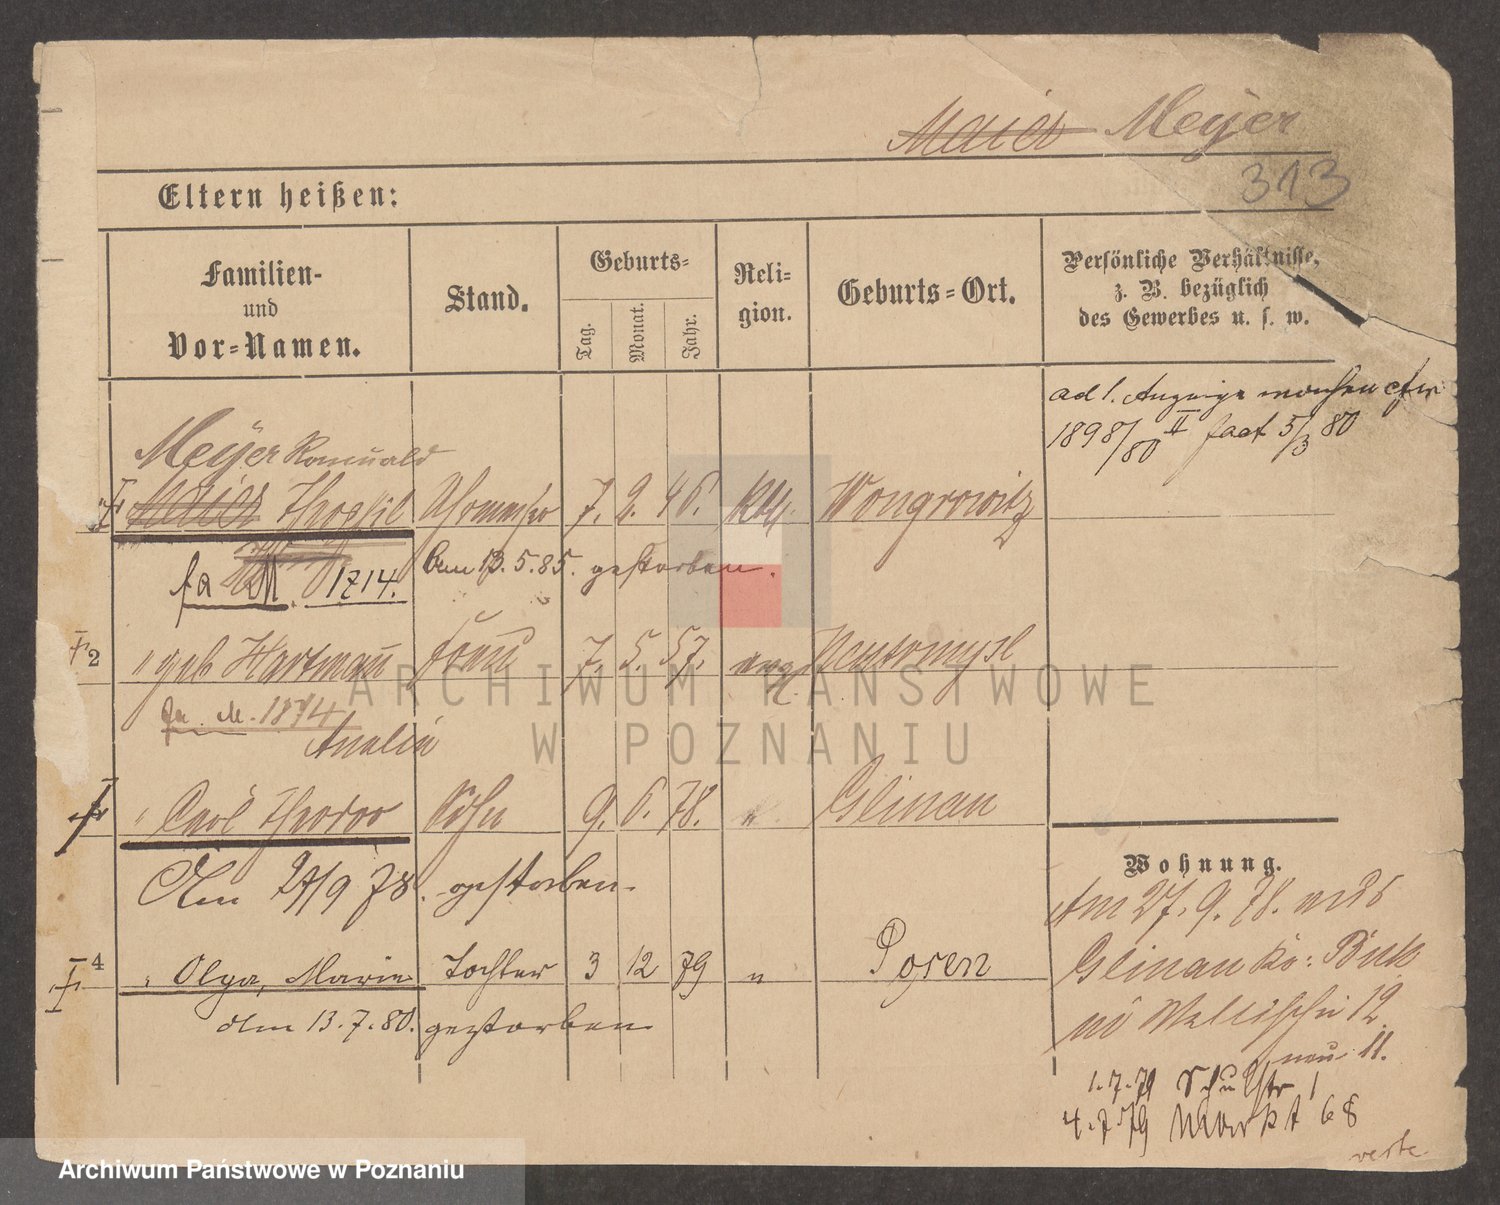 Maier Meyer
313
Eltern heißen:
Familien- und Vor-Namen.
Stand.
Geburts-
Tag.
Monat.
Jahr.
Reli-gion.
Geburts-Ort.
Persönliche Verhältnisse, z. B. bezüglich des Gewerbes u. s. w.
ad 1. Anzeige
1898/80 II fact 5/3 80
Meyer Romuald
Maier Theophil 7. 2. 46. kth. Wongrowitz
fa M. 1714. Am 13.5.85. gestorben.
2 " geb Hartmann Frau 7. 5. 57. evgl Neutomysl
fa. M. 1874
Analie
" Carl Theodor Sohn 9. 6. 78. " Glinau
Am 27/9 78. gestorben.
4 " Olga, Marie Tochter 3 12 79 " Posen
Am 13.7.80. gestorben
Wohnung.
Am 27. 9. 78. aus
Glinau Kr: Buk
Wallischei 12
neu 11.
1.7.79 Schulstr 1
4.7 79 Markt 68
verte.
ARCHIWUM PAŃSTWOWE
W POZNANIU
Archiwum Państwowe w Poznaniu